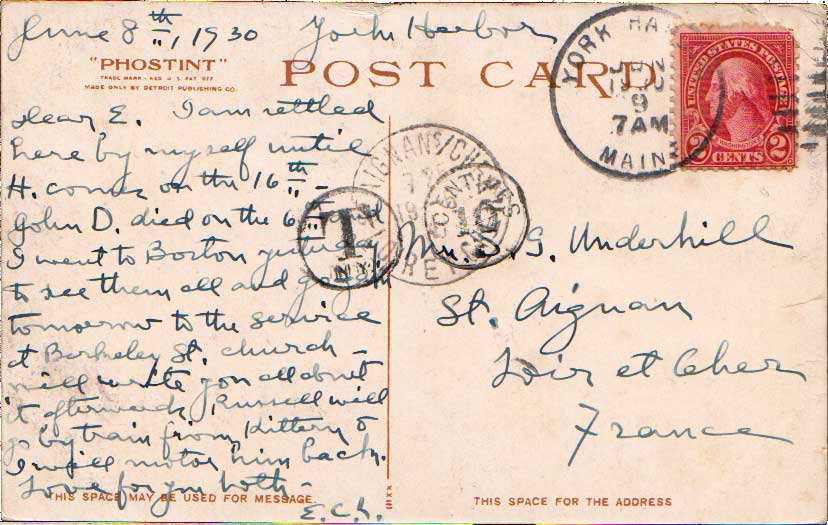 June 8th, 1930 York Harbor
"PHOSTINT"
TRADE MARK - REG U S PAT OFF
MADE ONLY BY DETROIT PUBLISHING CO.
POST CARD
YORK HA
JUN
9
7 AM
MAINE
UNITED STATES POSTAGE
WASHINGTON
2 CENTS 2
Dear E. I am settled
here by myself until
H. comes on the 16th -
John D. died on the 6th and
I went to Boston yesterday
to see them all and go again
tomorrow to the service
at Berkeley St. church -
will write you all about
it afterwards, Russell will
go by train from Kittery &
I will motor him back.
Love for you both -
E.C.
T
N.Y.
CENTIMES
Mrs. G. Underhill
St. Aignan
Loir et Cher
France
THIS SPACE MAY BE USED FOR MESSAGE.
THIS SPACE FOR THE ADDRESS